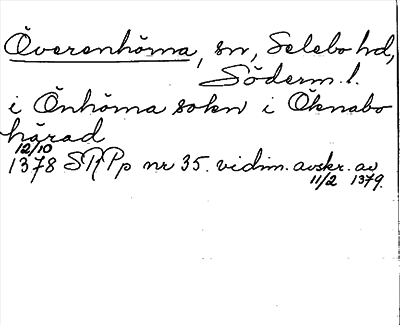 Överenhörna, sn, Selebo hd,
Söderm. l.
i Önhörna sokn i Öknabo
härad
12/10
1378 SRPp nr 35. vidim. avskr. av
11/2 1379.